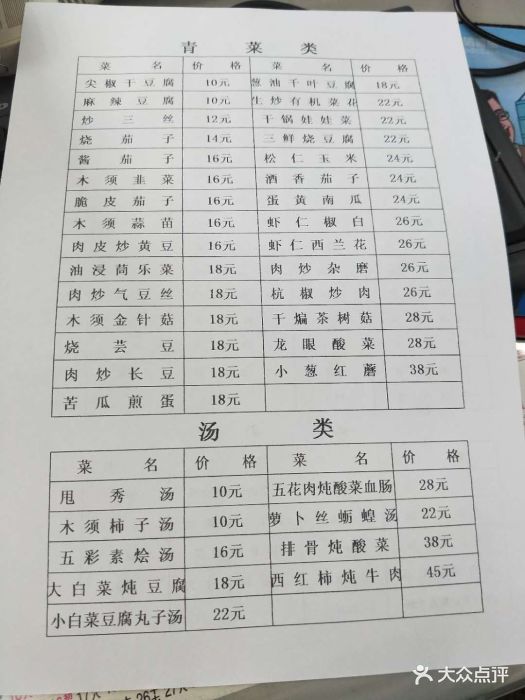 青菜类
菜名 价格 菜名 价格
尖椒干豆腐 10元 葱油千叶豆腐 18元
麻辣豆腐 10元 生炒有机菜花 22元
炒三丝 12元 干锅娃娃菜 22元
烧茄子 14元 三鲜烧豆腐 22元
酱茄子 16元 松仁玉米 24元
木须韭菜 16元 酒香茄子 24元
脆皮茄子 16元 蛋黄南瓜 24元
木须蒜苗 16元 虾仁椒白 26元
肉皮炒黄豆 16元 虾仁西兰花 26元
油浸茼乐菜 18元 肉炒杂磨 26元
肉炒气豆丝 18元 杭椒炒肉 26元
木须金针菇 18元 干煸茶树菇 28元
烧芸豆 18元 龙眼酸菜 28元
肉炒长豆 18元 小葱红蘑 38元
苦瓜煎蛋 18元
汤类
菜名 价格 菜名 价格
甩秀汤 10元 五花肉炖酸菜血肠 28元
木须柿子汤 10元 萝卜丝蛎蝗汤 22元
五彩素烩汤 16元 排骨炖酸菜 38元
大白菜炖豆腐 18元 西红柿炖牛肉 45元
小白菜豆腐丸子汤 22元
大众点评